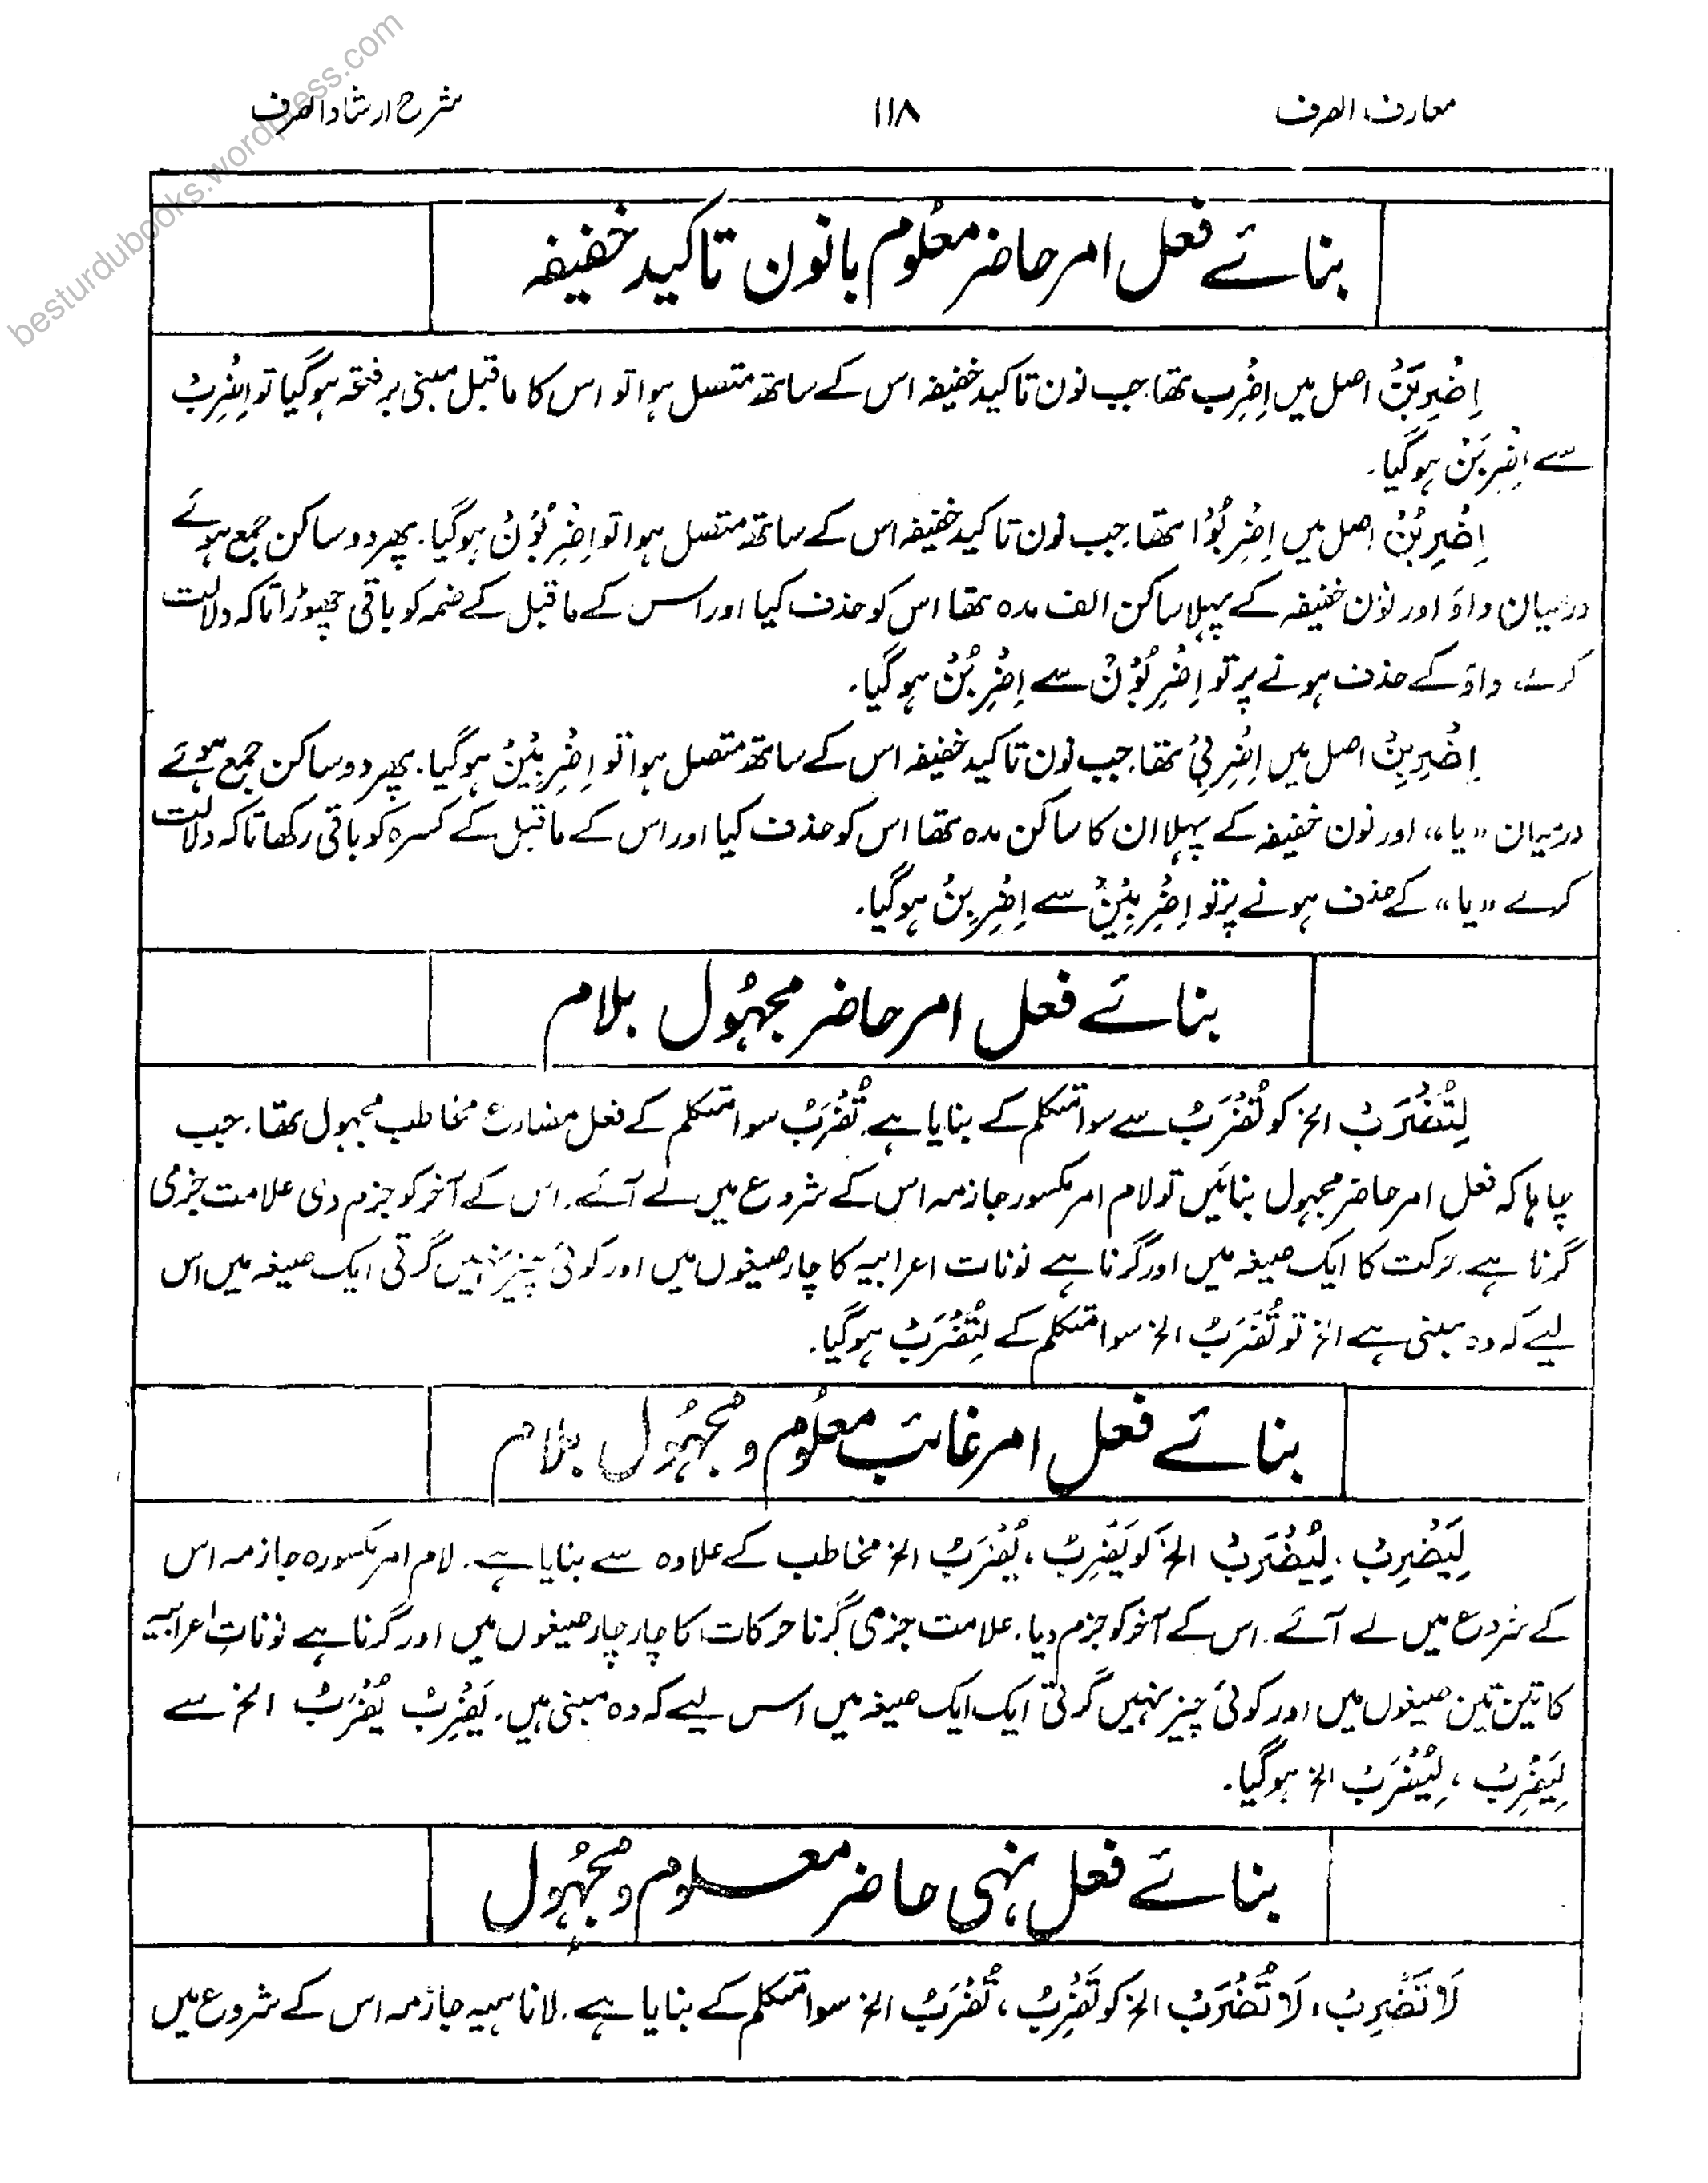 معارف الصرف ۱۱۸ شرح ارشاد الصرف
besturdubooks.wordpress.com
بنائے فعل امر حاضر معلوم بانون تاکید خفیفہ
اِضْرِبَنْ اصل میں اِضْرِب تھا۔ جب نون تاکید خفیفہ اس کے ساتھ متصل ہوا تو اس کا ماقبل مبنی بر فتحہ ہوگیا تو اِضْرِبْ
سے اِضْرِبَنْ ہوگیا۔
اِضْرِبُنْ اصل میں اِضْرِبُوْا تھا۔ جب نون تاکید خفیفہ اس کے ساتھ متصل ہوا تو اِضْرِبُوْنْ ہوگیا۔ پھر دو ساکن جمع ہوئے
درمیان واؤ اور نون خفیفہ کے پہلا ساکن الف مدہ تھا اس کو حذف کیا اور اس کے ماقبل کے ضمہ کو باقی چھوڑا تاکہ دلالت
کرے واؤ کے حذف ہونے پر تو اِضْرِبُوْنْ سے اِضْرِبُنْ ہوگیا۔
اِضْرِبِنْ اصل میں اِضْرِبِیْ تھا۔ جب نون تاکید خفیفہ اس کے ساتھ متصل ہوا تو اِضْرِبِیْنْ ہوگیا۔ پھر دو ساکن جمع ہوئے
درمیان «یا» اور نون خفیفہ کے پہلا ان کا ساکن مدہ تھا اس کو حذف کیا اور اس کے ماقبل کے کسرہ کو باقی رکھا تاکہ دلالت
کرے «یا» کے حذف ہونے پر تو اِضْرِبِیْنْ سے اِضْرِبِنْ ہوگیا۔
بنائے فعل امر حاضر مجہول بلام
لِتُضْرَبْ الخ کو تُضْرَبُ سے سوا متکلم کے بنایا ہے۔ تُضْرَبُ سوا متکلم کے فعل مضارع مخاطب مجہول تھا۔ جب
چاہا کہ فعل امر حاضر مجہول بنائیں تو لام امر مکسور جازمہ اس کے شروع میں لے آئے۔ اس کے آخر کو جزم دی علامت جزمی
گرنا ہے۔ حرکت کا ایک صیغہ میں اور گرنا ہے نونات اعرابیہ کا چار صیغوں میں اور کوئی چیز نہیں گرتی ایک صیغہ میں اس
لیے کہ وہ مبنی ہے الخ تو تُضْرَبُ الخ سوا متکلم کے لِتُضْرَبْ ہوگیا۔
بنائے فعل امر غائب معلوم و مجہول بلام
لِیَضْرِبْ ، لِیُضْرَبْ الخ کو یَضْرِبُ ، یُضْرَبُ الخ مخاطب کے علاوہ سے بنایا ہے۔ لام امر مکسورہ جازمہ اس
کے شروع میں لے آئے۔ اس کے آخر کو جزم دیا۔ علامت جزمی گرنا حرکات کا چار چار صیغوں میں اور گرنا ہے نونات اعرابیہ
کا تین تین صیغوں میں اور کوئی چیز نہیں گرتی ایک ایک صیغہ میں اس لیے کہ وہ مبنی ہیں۔ یَضْرِبُ یُضْرَبُ الخ سے
لِیَضْرِبْ ، لِیُضْرَبْ الخ ہوگیا۔
بنائے فعل نہی حاضر معلوم و مجہول
لَا تَضْرِبْ ، لَا تُضْرَبْ الخ کو تَضْرِبُ ، تُضْرَبُ الخ سوا متکلم کے بنایا ہے۔ لا ناہیہ جازمہ اس کے شروع میں